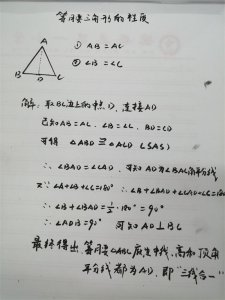 等腰三角形的性质
A
① AB=AC
② ∠B=∠C
B D C
解:取BC边上的中点D,连接AD
已知AB=AC,∠B=∠C,BD=CD
可得 △ABD≌△ACD(SAS)
∴ ∠BAD=∠CAD,可知AD为∠BAC角平分线
又∵∠A+∠B+∠C=180° ∴∠B+∠BAD+∠CAD+∠C=180°
∴∠B+∠BAD=½·180°=90°
∴∠ADB=90° 可知AD⊥BC
最终得出,等腰△ABC底边中线,高和顶角
平分线都为AD,即"三线合一"